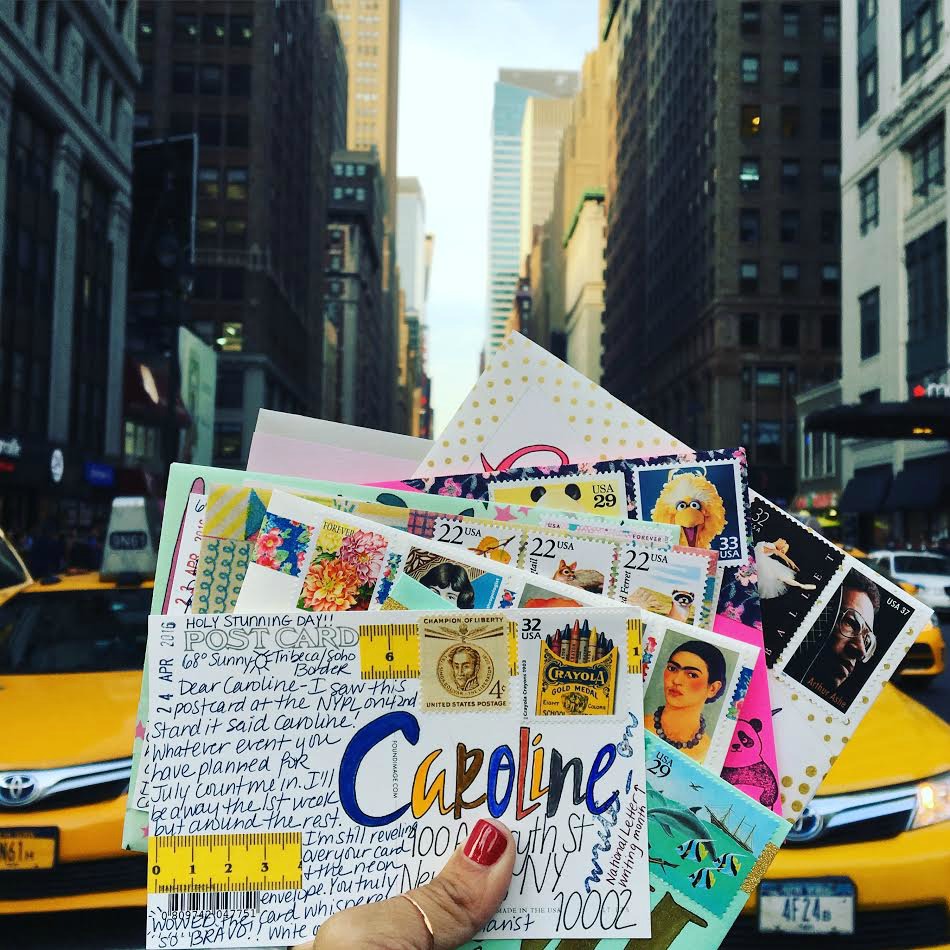 USA
29
33
USA
32
BALLET
USA 37
Arthur Ashe
FOREVER
22 USA
22 USA
22 USA
FOREVER
Ferret
29
24 APR 2016
HOLY STUNNING DAY!!
POST CARD
68° Sunny Tribeca/Soho
Border
Dear Caroline - I saw this
postcard at the NYPL on 42nd
Stand it said Caroline!
Whatever event you
have planned for
July count me in. I'll
be away the 1st week
but around the rest.
I'm still reveling
over your card
+ the neon
envelope. You truly
WOWED
card whisperer
"SO" BRAVO!!
6
CHAMPION OF LIBERTY
4¢
UNITED STATES POSTAGE
32
USA
Crayola Crayons 1903
CRAYOLA
GOLD MEDAL
EIGHT COLORS
SCHOOL
FOUNDIMAGE.COM
Caroline
South St
NY
10002
National Letter
Writing month
MADE IN THE USA
0 1 2 3 4
0 809742 047751
N61
NEW YORK
4F24